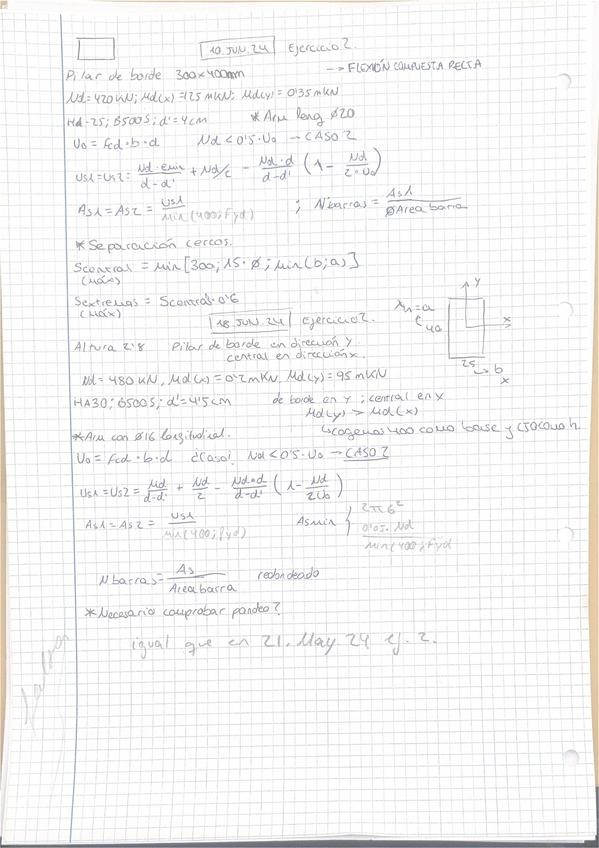 10 JUN. 24 Ejercicio 2.
Pilar de borde 300x400mm --> FLEXIÓN COMPUESTA RECTA
Nd=420 KN; Md(x)=125 mKN; Md(y)=0'35 mKN
HA-25; B500S; d'=4cm *Arm long ø20
U0 = Fcd·b·d Nd < 0'5·U0 → CASO 2
Us1=Us2= Nd·emin/d-d' + Nd/2 - Nd·d/d-d' (1 - Nd/2·U0)
As1 = As2 = Us1/min(400; Fyd) ; Nºbarras = As1/øArea barra
*Separación cercos.
Scentral = min[300; 15·ø; min(b;a)]
(MÁX)
Sextremas = Scentral·0'6
(MÁX)
y
x
=a
40
25
b
x
18 JUN. 24 Ejercicio 2.
Altura 2'8 Pilar de borde en dirección y
central en dirección x.
Nd = 480 KN, Md(x) = 0'2 mKN, Md(y) = 95 mKN
HA30; B500S; d'=4'5cm de borde en y ; central en x
Md(y) > Md(x)
↳cogemos 400 como base y 250 como h
*Arm con ø16 longitudinal.
U0 = Fcd·b·d ¿Caso? Nd < 0'5·U0 → CASO 2
Us1 = Us2 = Md/d-d' + Nd/2 - Nd·d/d-d' (1 - Nd/2U0)
As1 = As2 = Us1/min(400; fyd) Asmin { 2π6² 0'05·Nd/min(400; Fyd
Nbarras = As/Area barra redondeado
*Necesario comprobar pandeo?
igual que en 21. May. 24 ej. 2.